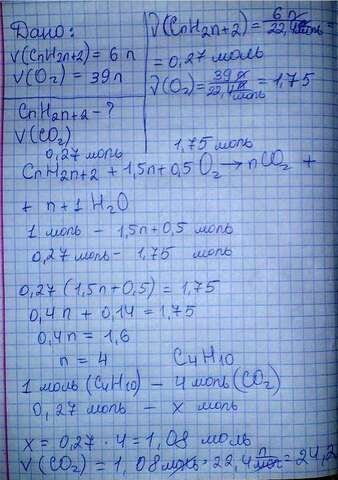 Дано:
V(CnH2n+2) = 6 л
V(O2) = 39л
CnH2n+2 - ?
V(CO2)
ν(CnH2n+2) = 6 л / 22,4 л/моль =
= 0,27 моль
ν(O2) = 39 л / 22,4 л/моль = 1,75
0,27 моль 1,75 моль
CnH2n+2 + 1,5n+0,5 O2 → nCO2 +
+ n+1 H2O
1 моль - 1,5n+0,5 моль
0,27 моль - 1,75 моль
0,27 (1,5n+0,5) = 1,75
0,4n + 0,14 = 1,75
0,4n = 1,6
n = 4 C4H10
1 моль (C4H10) - 4 моль (CO2)
0,27 моль - x моль
x = 0,27 · 4 = 1,08 моль
V(CO2) = 1,08 моль · 22,4 л/моль = 24,2